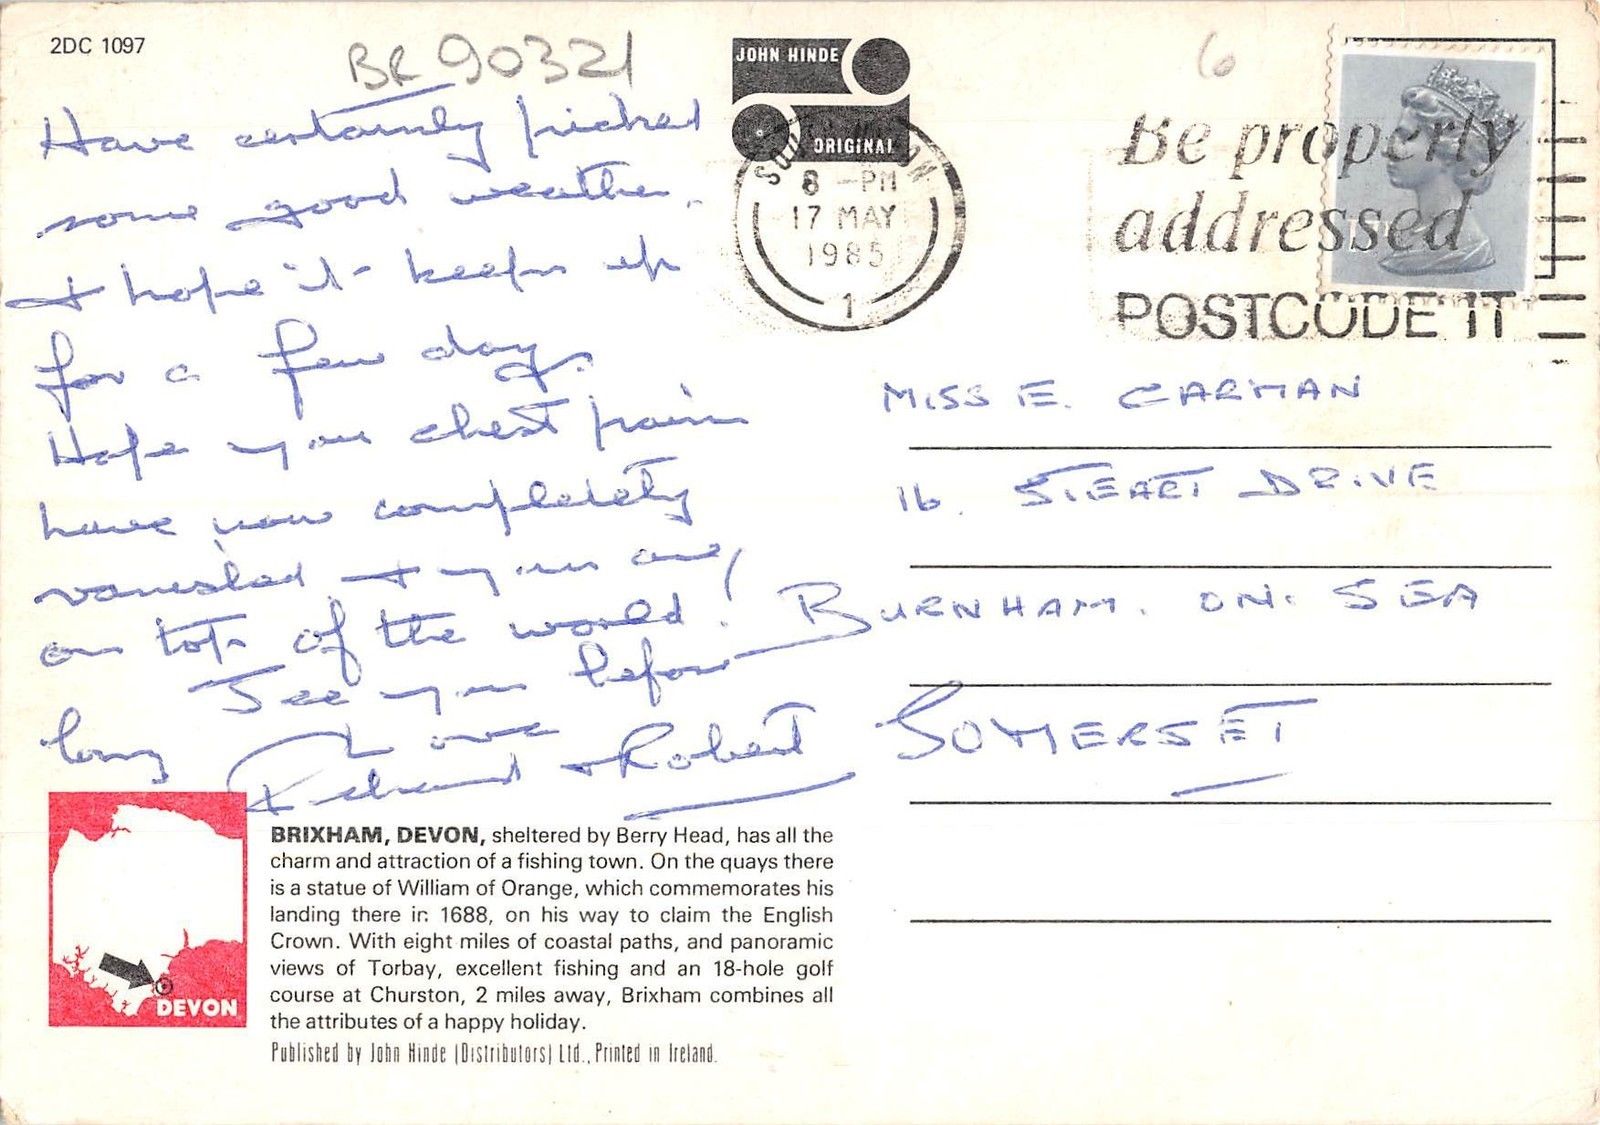 2DC 1097
BR 90321
6
JOHN HINDE
ORIGINAL
8 - PM
17 MAY
1985
1
Be properly
addressed
POSTCODE IT
Have certainly picked
some good weather.
+ hope it keeps up
for a few days.
Hope your chest pains
have now completely
vanished + you are
on top of the world!
See you before
long Love
Richard + Robert
MISS E. CARMAN
16. STEART DRIVE
BURNHAM. ON. SEA
SOMERSET
DEVON
BRIXHAM, DEVON, sheltered by Berry Head, has all the
charm and attraction of a fishing town. On the quays there
is a statue of William of Orange, which commemorates his
landing there in 1688, on his way to claim the English
Crown. With eight miles of coastal paths, and panoramic
views of Torbay, excellent fishing and an 18-hole golf
course at Churston, 2 miles away, Brixham combines all
the attributes of a happy holiday.
Published by John Hinde (Distributors) Ltd., Printed in Ireland.